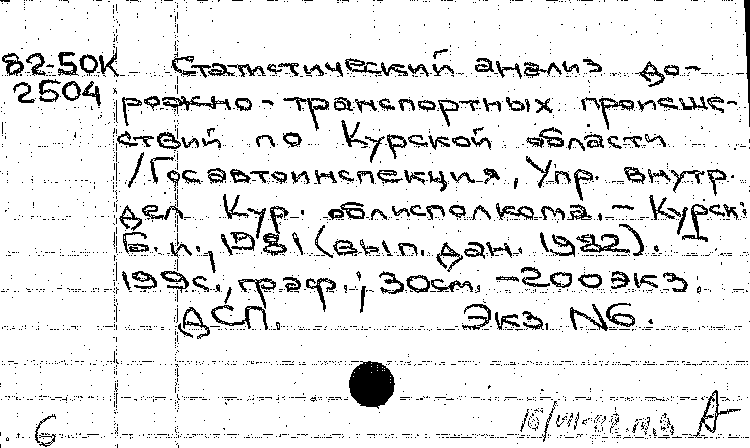 82-50К Статистический анализ до-
2504 рожно-транспортных происше-
ствий по Курской области
/Госавтоинспекция, Упр. внутр.
дел Кур. облисполкома. - Курск:
Б.и., 1981 (вып. дан. 1982). -
199с., граф.; 30см. -200экз.
ДСП. Экз. N6.
6 А